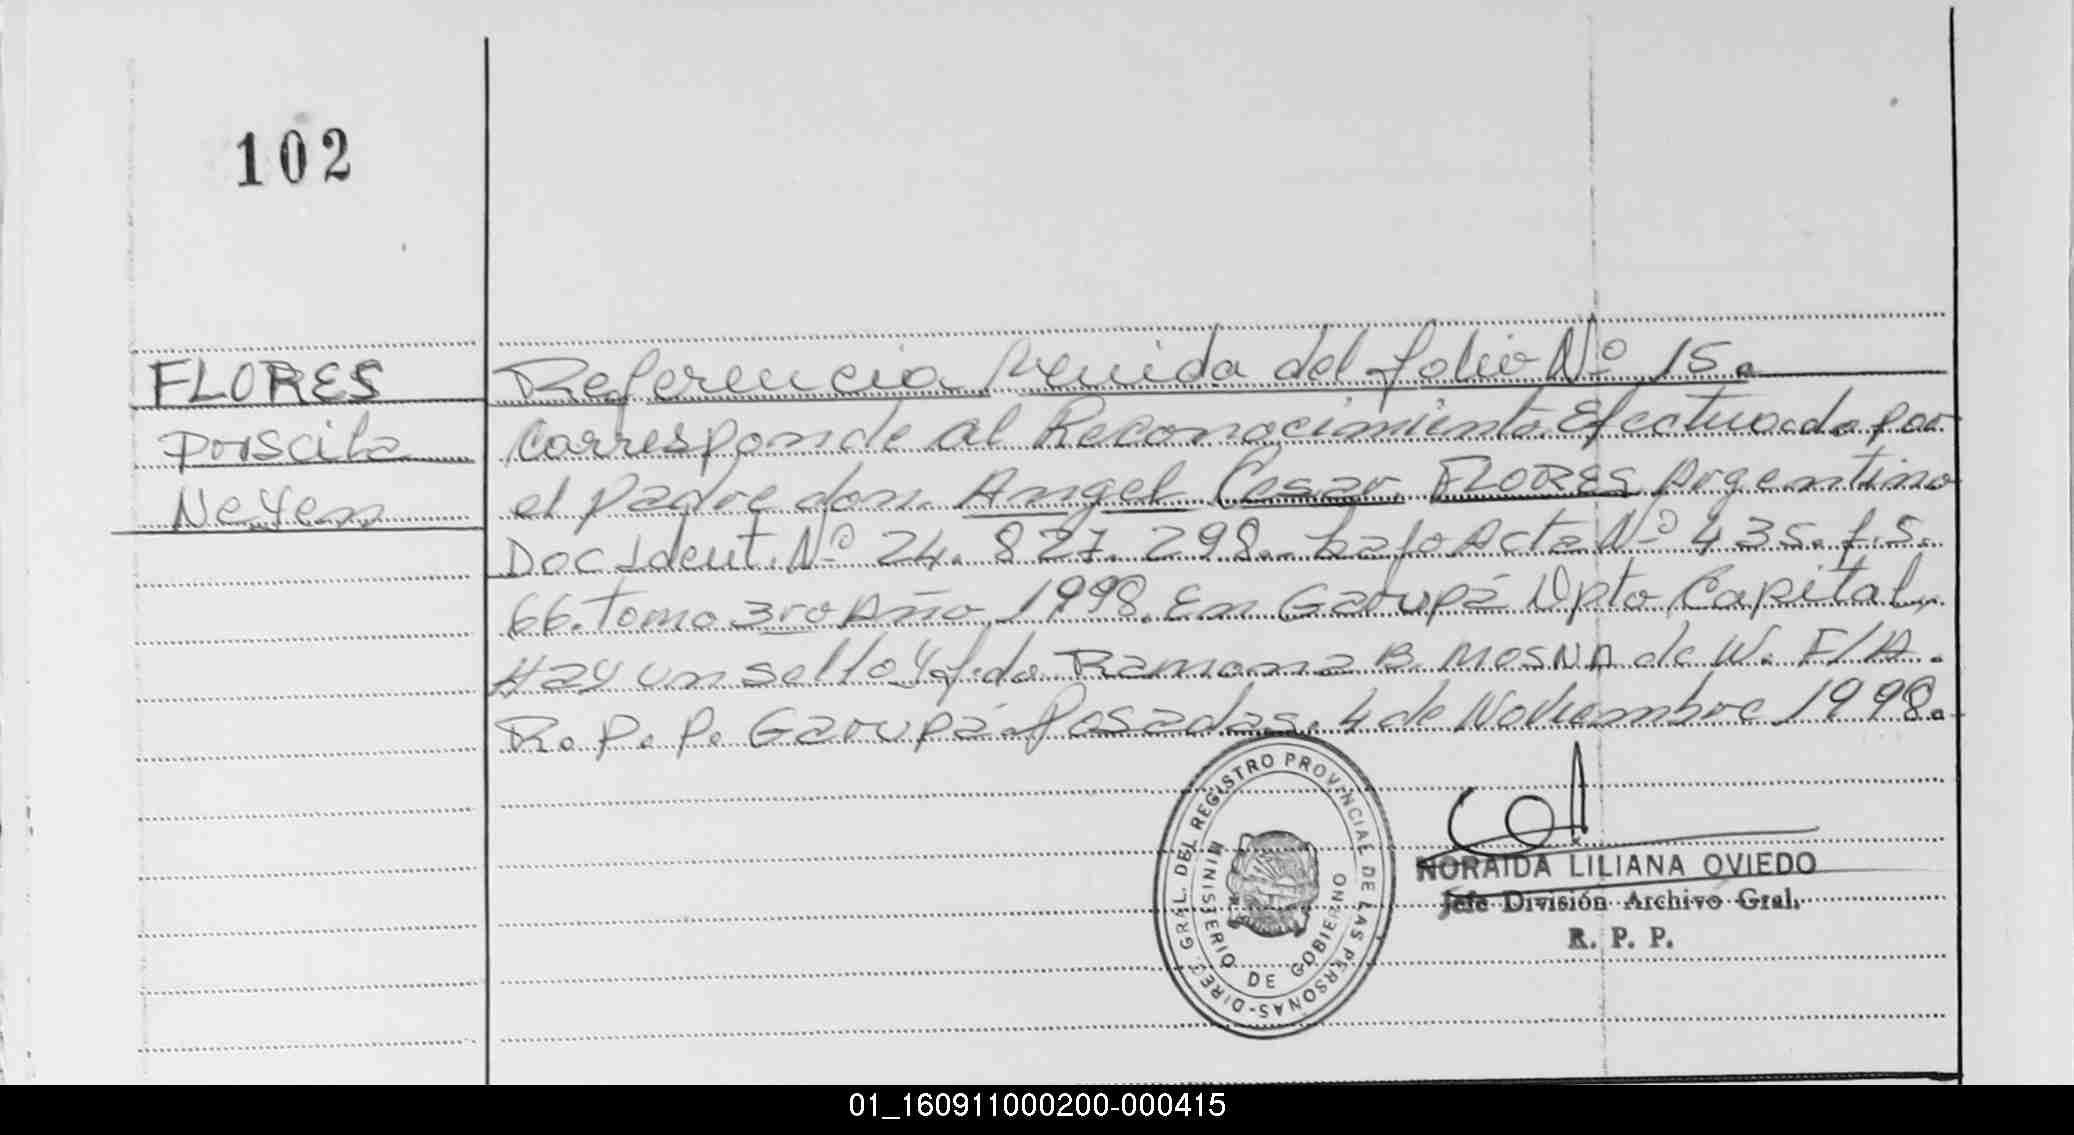 102
FLORES
Priscila
Neyen
Referencia venida del folio Nº 15.
Corresponde al Reconocimiento Efectuado por
el padre don. Angel Cesar. FLORES Argentino
Doc Ident. Nº 24. 827. 298. bajo Acta Nº 435. f.S.
66. Tomo 3ro Año 1998. En Garupá Dpto Capital.
Hay un sello y f.do. Ramona B. MOSNA de W. E/A.
R. P. P. Garupá. Posadas. 4 de Noviembre 1998.
DIREC. GRAL. DEL REGISTRO PROVINCIAL DE LAS PERSONAS-
MINISTERIO DE GOBIERNO
NORAIDA LILIANA OVIEDO
Jefe División Archivo Gral.
R. P. P.
01_160911000200-000415